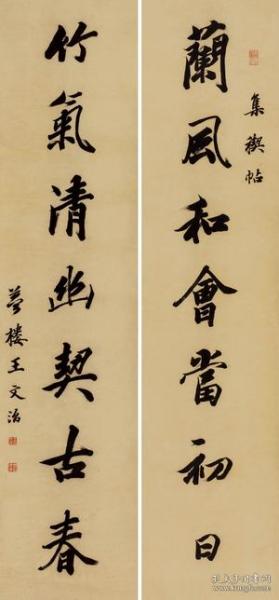 蘭風和會當初日
集禊帖
竹氣清幽契古春
夢樓王文治